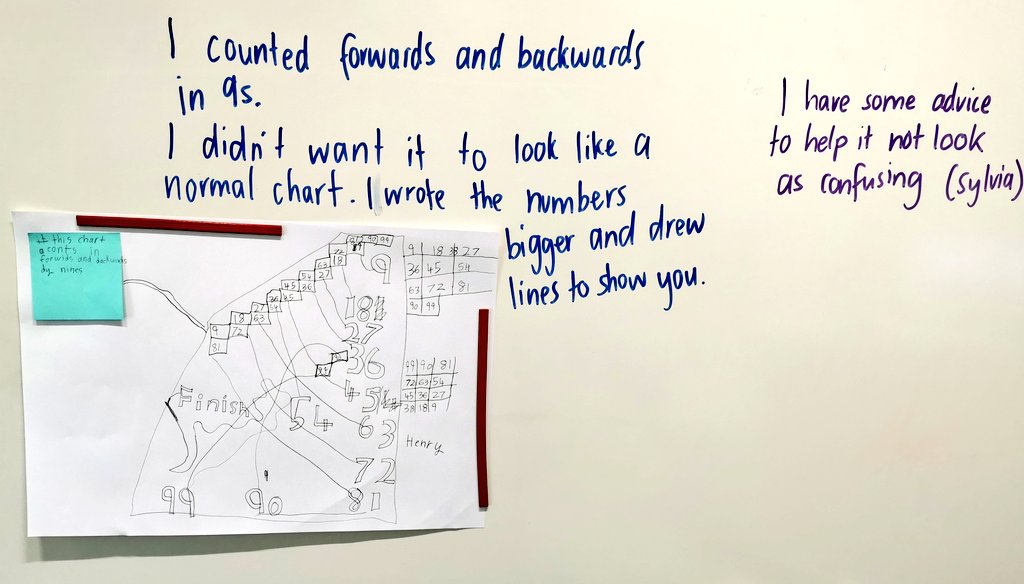 I counted forwards and backwards
in 9s.
I didn't want it to look like a
normal chart. I wrote the numbers
bigger and drew
lines to show you.
I have some advice
to help it not look
as confusing (sylvia)
this chart
conts in
forwids and backwards
by nines
90 99
9 18 27
36 45 54
63 72 81
90 99
63 18
54 27
45 36
36 45
27 54
18 63
9 72
81
9
18
27
36
45
54
63
72
81
90
99
Finish
99 90 81
72 63 54
45 36 27
38 18 9
Henry